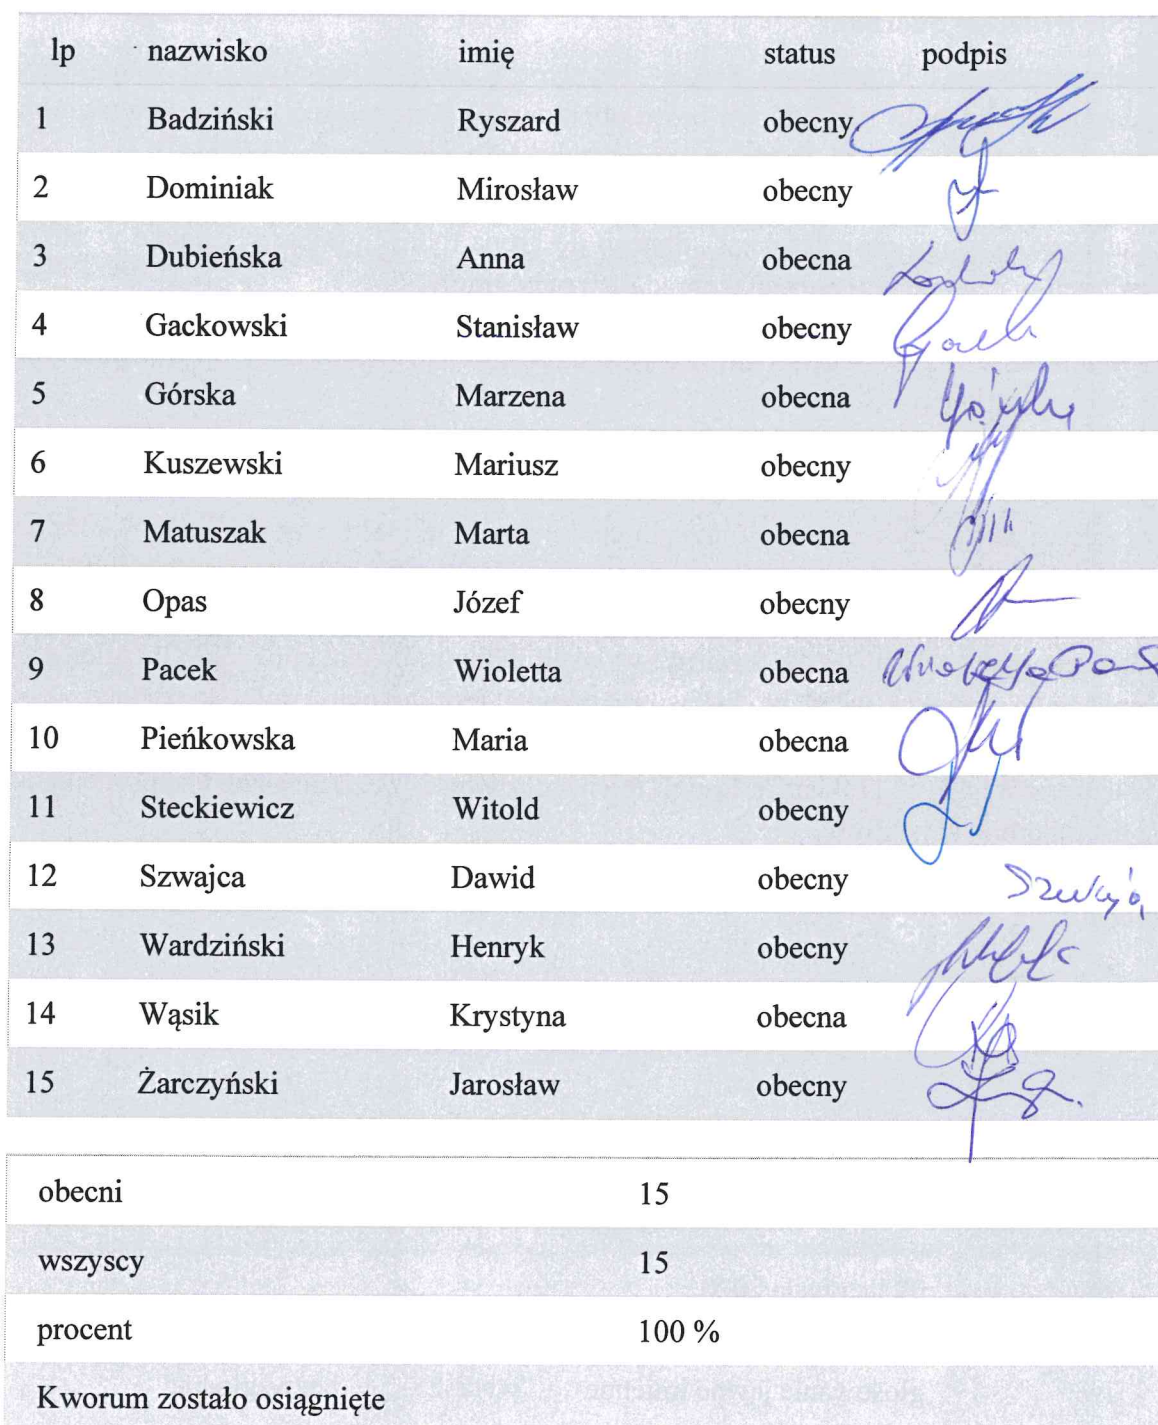 lp nazwisko imię status podpis
1 Badziński Ryszard obecny
2 Dominiak Mirosław obecny
3 Dubieńska Anna obecna
4 Gackowski Stanisław obecny
5 Górska Marzena obecna
6 Kuszewski Mariusz obecny
7 Matuszak Marta obecna
8 Opas Józef obecny
9 Pacek Wioletta obecna
10 Pieńkowska Maria obecna
11 Steckiewicz Witold obecny
12 Szwajca Dawid obecny
13 Wardziński Henryk obecny
14 Wąsik Krystyna obecna
15 Żarczyński Jarosław obecny
obecni 15
wszyscy 15
procent 100 %
Kworum zostało osiągnięte